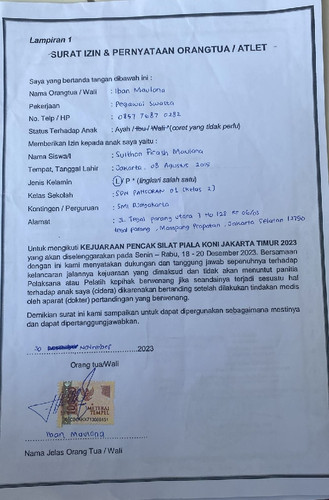 Lampiran 1
SURAT IZIN & PERNYATAAN ORANGTUA / ATLET
Saya yang bertanda tangan dibawah ini :
Nama Orangtua / Wali : Iban Maulana
Pekerjaan : Pegawai Swasta
No. Telp / HP : 0857 7687 0282
Status Terhadap Anak : Ayah / Ibu / Wali * (coret yang tidak perlu)
Memberikan Izin kepada anak saya yaitu :
Nama Siswa/i : Sulthan Maulana
Tempat, Tanggal Lahir : Jakarta, 03 Agustus 2015
Jenis Kelamin : L / P * (lingkari salah satu)
Kelas Sekolah : SDN PANCORAN 01 (Kelas 2)
Kontingen / Perguruan : SMI
Alamat : Jl. Tegal parang utara No 12B RT 06/03
tegal parang, Mampang Prapatan, Jakarta Selatan 12790
Untuk mengikuti KEJUARAAN PENCAK SILAT PIALA KONI JAKARTA TIMUR 2023
yang akan diselenggarakan pada Senin – Rabu, 18 - 20 Desember 2023. Bersamaan
dengan ini kami menyatakan dukungan dan tanggung jawab sepenuhnya terhadap
kelancaran jalannya kejuaraan yang dimaksud dan tidak akan menuntut panitia
Pelaksana atau Pelatih kopihak berwenang jika seandainya terjadi sesuatu hal
terhadap anak saya (cidera) dikarenakan bertanding setelah dilakukan tindakan medis
oleh aparat (dokter) pertandingan yang berwenang.
Demikian surat ini kami sampaikan untuk dapat dipergunakan sebagaimana mestinya
dan dapat dipertanggungjawabkan.
30 November 2023
Orang tua/Wali
METERAI
TEMPEL
Iban Maulana
Nama Jelas Orang Tua / Wali